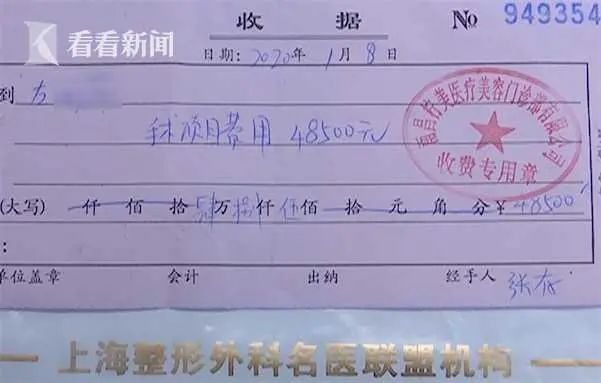 看看新闻
收据 № 949354
日期: 2020年1月8日
到 方
手术项目费用 48500元
医疗美容门诊部有限公司
收费专用章
(大写) 仟佰拾肆万捌仟伍佰拾元角分¥48500
:
单位盖章 会计 出纳 经手人 张存
上海整形外科名医联盟机构